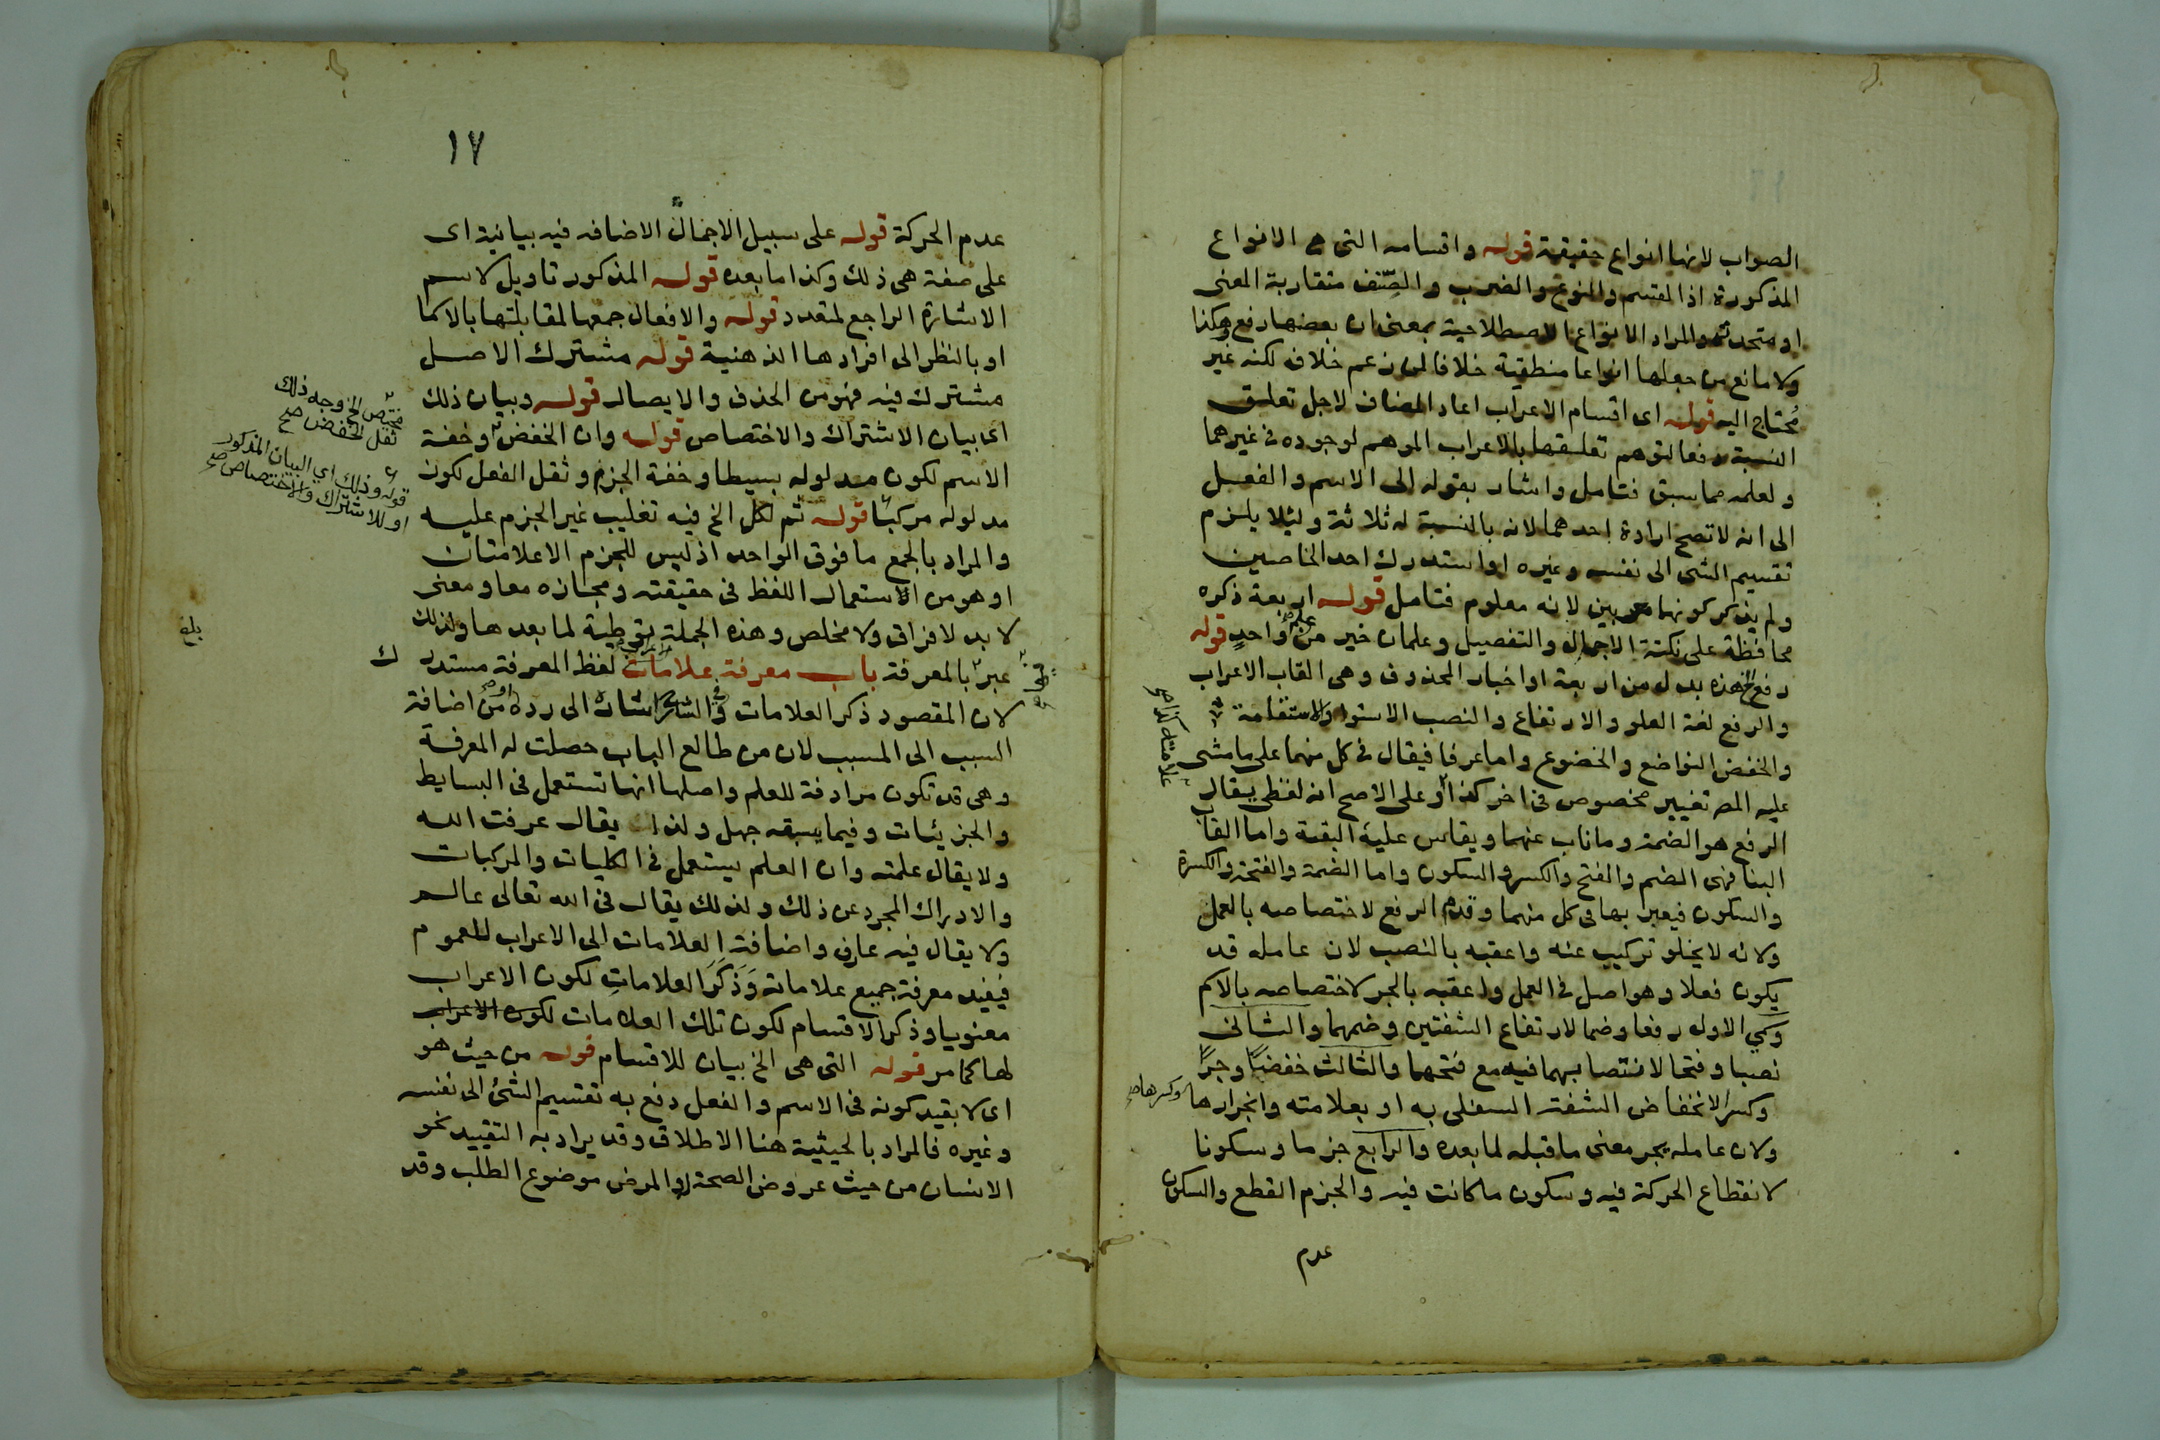 الصواب لانها انواع حقيقية قوله واقسامه التى هى الانواع
المذكورة اذ القسم والنوع والضرب والصنف متقاربة المعنى
او متحدته والمراد الانواع الاصطلاحية بمعنى ان بعضها رفع وهكذا
ولا مانع من جعلها انواعا منطقية خلافا لمن زعم خلافه لكنه غير
محتاج اليه قوله اى اقسام الاعراب اعاد المضاف لاجل تعلق
النسبة دفعا لتوهم تعلقها بالاعراب الموهم لوجوده فى غيرهما
ولعلمه مما سبق فتامل واشار بقوله الى الاسم والفعل
الى انه لا تصح ارادة احدهما لانه بالنسبة له ثلاثة ولئلا يلزم
تقسيم الشى الى نفسه وغيره او استدرك احد الخاصين
ولم يذكر كونهما معربين لانه معلوم فتامل قوله اربعة ذكره
محافظة على نكتة الاجمال والتفصيل وعلمان خير من علم واحد قوله
رفع الخ هذه بدل من اربعة او اخبار لمحذوف وهى القاب الاعراب
والرفع لغة العلو والارتفاع والنصب الاستوا والاستقامة
والخفض التواضع والخضوع واما عرفا فيقال فى كل منهما على ما مشى
عليه المص تغيير مخصوص فى اخر كذا او على الاصح انه لفظى يقال
الرفع هو الضمة وما ناب عنهما ويقاس عليه البقية واما القاب
البنا فهى الضم والفتح والكسر والسكون واما الضمة والفتحة والكسرة
والسكون فيعبر بها فى كل منهما وقدم الرفع لاختصاصه بالعمل
ولانه لا يخلو تركيب عنه واعقبه بالنصب لان عامله قد
يكون فعلا وهو اصل فى العمل واعقبه بالجر لاختصاصه بالاسم
وسمي الاول رفعا وضما لارتفاع الشفتين وضمهما والثانى
نصبا وفتحا لانتصابهما فيه مع فتحهما والثالث خفضا وجرا
وكسرا لانخفاض الشفة السفلى به او بعلامته وانجرارها وكسرها صح
ولان عامله يجر معنى ما قبله لما بعده والرابع جزما وسكونا
لانقطاع الحركة فيه وسكون ما كانت فيه والجزم القطع والسكون
عدم
١٧
عدم الحركة قوله على سبيل الاجمال الاضافه فيه بيانية اى
على صفة هى ذلك وكذا ما بعده قوله المذكور تاويل لاسم
الاشارة الراجع لمتعدد قوله والافعال جمعها لمقابلتها بالاسما
او بالنظر الى افرادها الذهنية قوله مشترك الاصل
مشترك فيه فهو من الحذف والايصال قوله وبيان ذلك
اى بيان الاشتراك والاختصاص قوله وان الخفض وخفة
الاسم لكون مدلوله بسيطا وخفة الجزم وثقل الفعل لكون
مدلوله مركبا قوله ثم لكل الخ فيه تغليب غير الجزم عليه
والمراد بالجمع ما فوق الواحد اذ ليس للجزم الا علامتان
او هو من استعمال اللفظ فى حقيقته ومجازه معا ومعنى
لا بد لا فراق ولا مخلص وهذه الجملة توطية لما بعدها ولذلك
عبر بالمعرفة باب معرفة علامات لفظ المعرفة مستدرك
لان المقصود ذكر العلامات وفى الشرح اشارة الى رده او من اضافة
السبب الى المسبب لان من طالع الباب حصلت له المعرفة
وهى قد تكون مرادفة للعلم واصلها انها تستعمل فى البسايط
والجزئيات وفيما يسبقه جهل ولذلك يقال عرفت الله
ولا يقال علمته وان العلم يستعمل فى الكليات والمركبات
والادراك المجرد عن ذلك ولذلك يقال فى الله تعالى عالم
ولا يقال فيه عارف واضافة العلامات الى الاعراب للعموم
فيفيد معرفة جميع علاماته وذكر العلامات لكون الاعراب
معنويا وذكر الاقسام لكون تلك العلامات لكون الاعراب
لها كما مر قوله التى هى الخ بيان للاقسام قوله من حيث هو
اى لا بقيد كونه فى الاسم والفعل دفع به تقسيم الشئ الى نفسه
وغيره فالمراد بالحيثية هنا الاطلاق وقد يراد به التقييد نحو
الانسان من حيث عروض الصحة والمرض موضوع الطلب وقد
مختص الخ وجه ذلك
ثقل الخفض صح
قوله وذلك اي البيان المذكور
او للاشتراك والاختصاص صح
بلغ